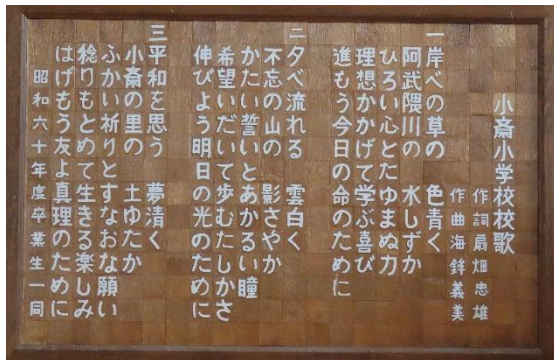 小斎小学校校歌
作詞扇畑忠雄
作曲海鉾義美
一岸べの草の 色青く
阿武隈川の 水しずか
ひろい心とたゆまぬ力
理想かかげて学ぶ喜び
進もう今日の命のために
二夕べ流れる 雲白く
不忘の山の 影さやか
かたい誓いとあかるい瞳
希望いだいて歩むたしかさ
伸びよう明日の光のために
三平和を思う 夢清く
小斎の里の 土ゆたか
ふかい祈りとすなおな願い
稔りもとめて生きる楽しみ
はげもう友よ真理のために
昭和六十年度卒業生一同